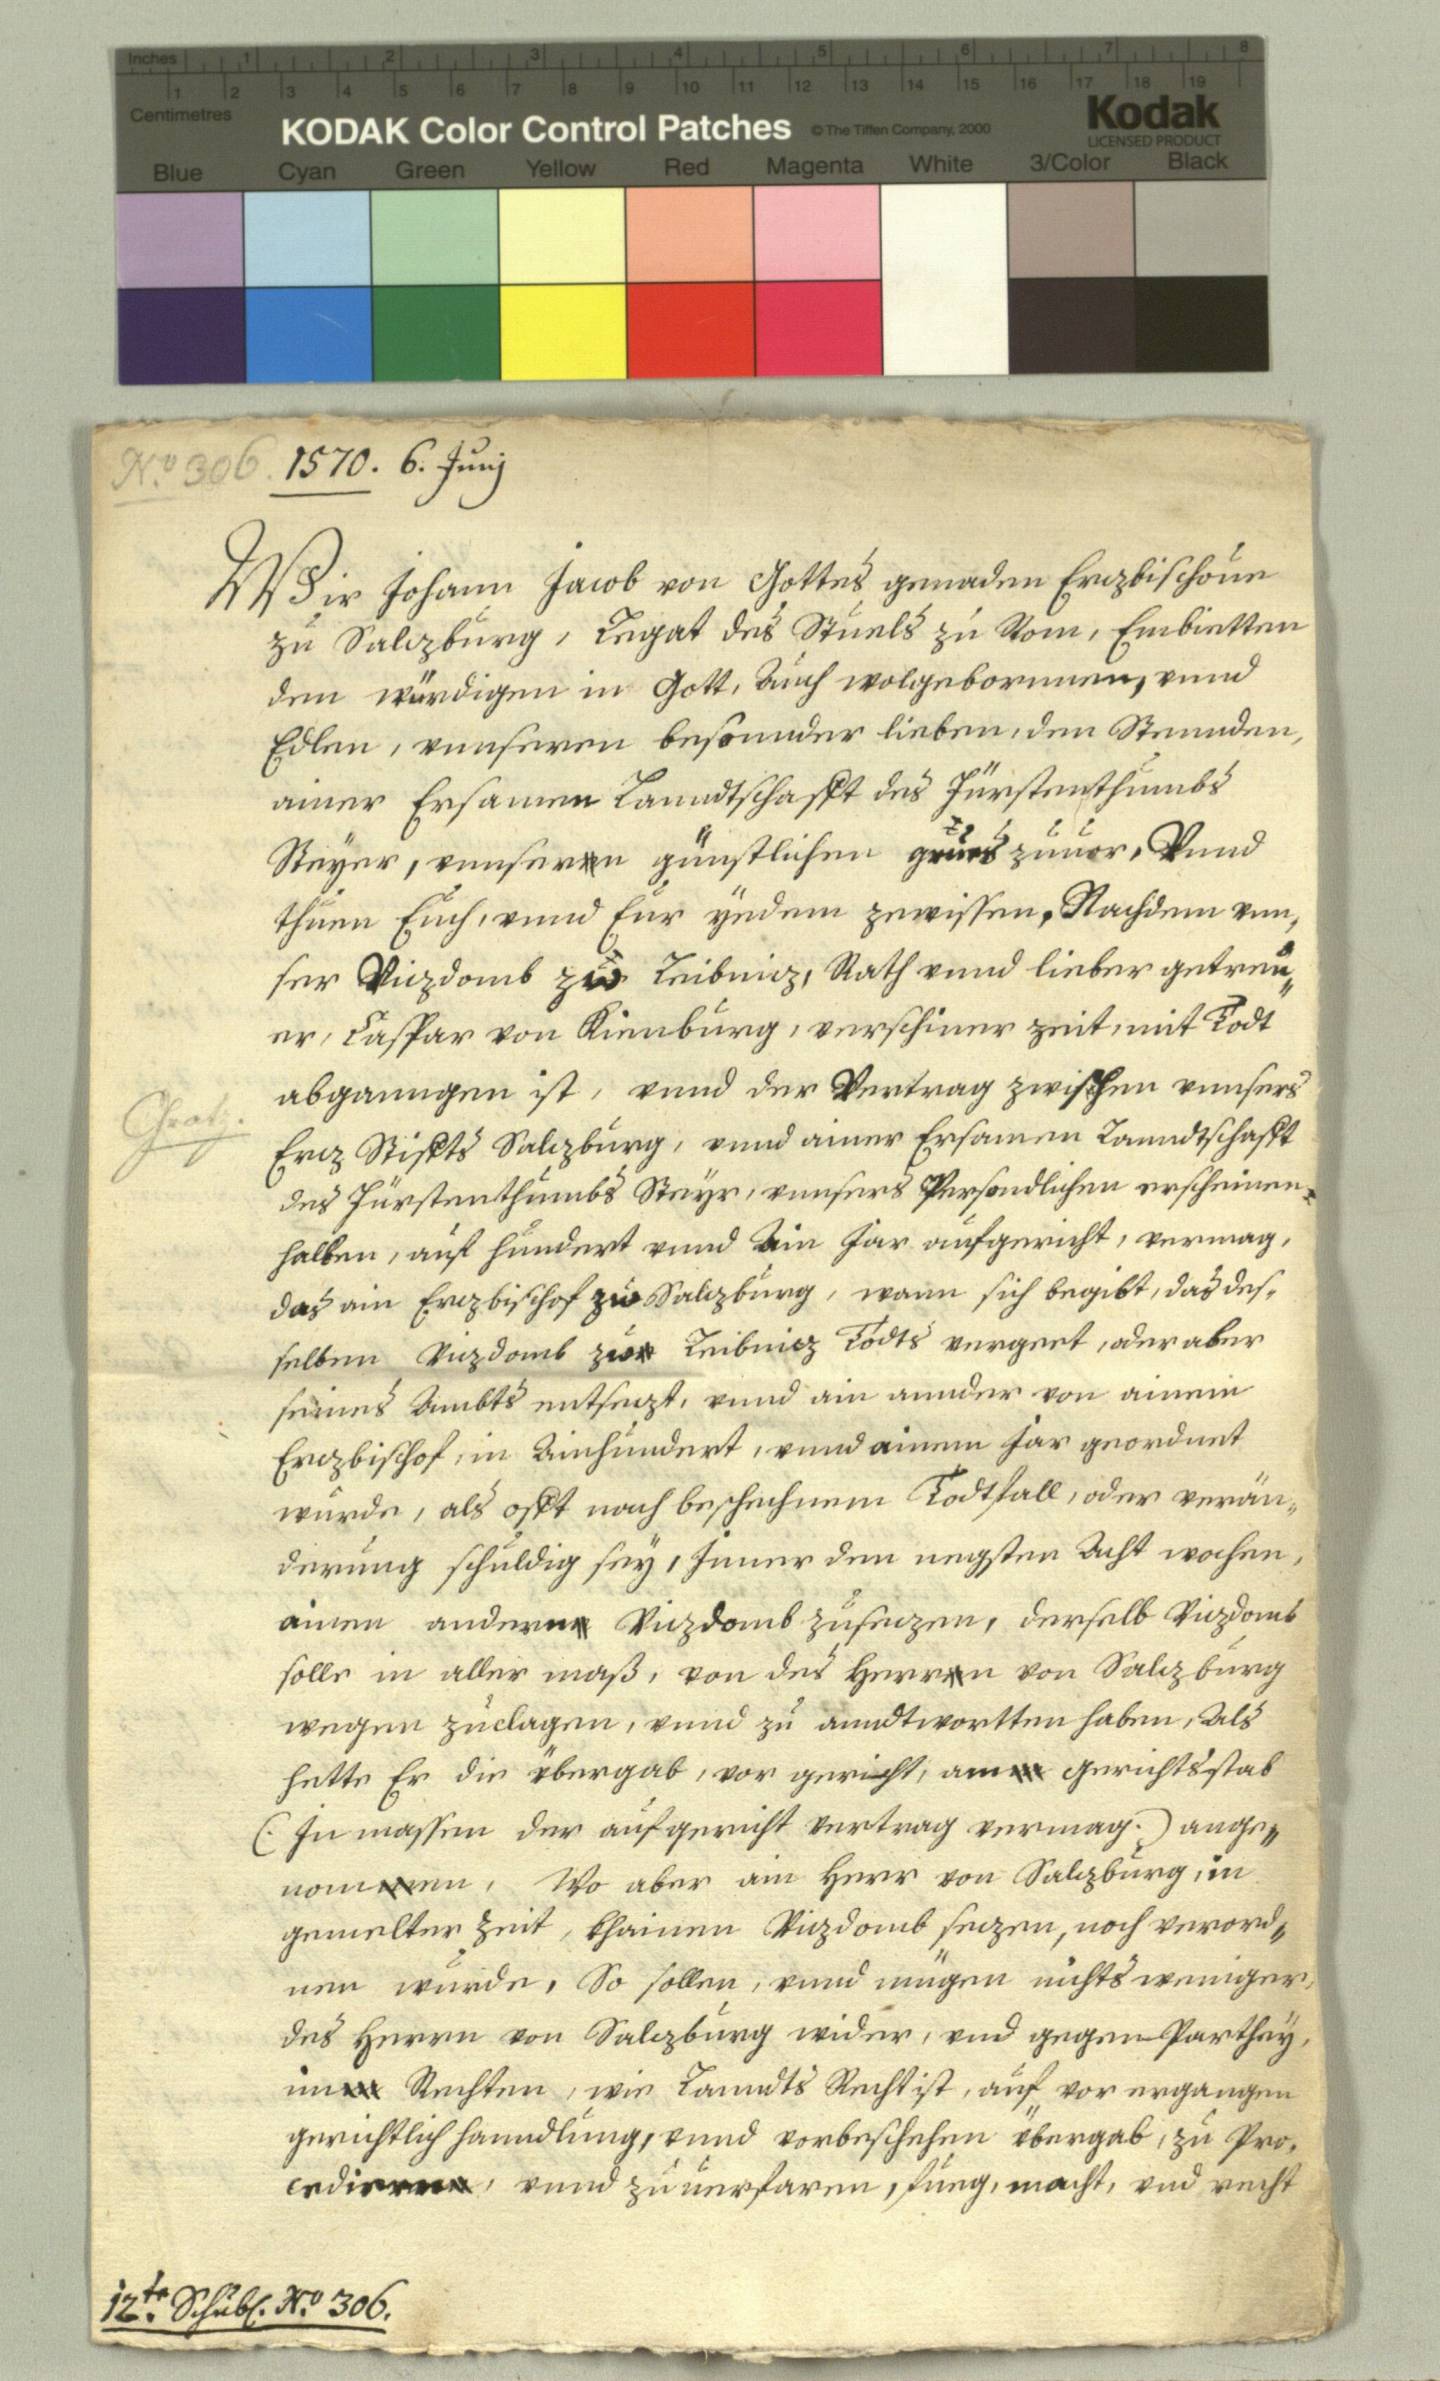 Inches 1 2 3 4 5 6 7 8
1 2 3 4 5 6 7 8 9 10 11 12 13 14 15 16 17 18 19
Centimetres
KODAK Color Control Patches © The Tiffen Company, 2000 Kodak
LICENSED PRODUCT
Blue Cyan Green Yellow Red Magenta White 3/Color Black
No. 306. 1570. 6. Junj
Wir Johann Jacob von Gottes genaden Erczbischoue
zu Salczburg, Legat des Stuels zu Rom, Embietten
den würdigen in Gott, Auch wolgebornnen, vnnd
Edlen, vnnseren besonnder lieben, den Stennden,
ainer Ersamen Lanndtschafft des Fürstenthumbs
Steyer, vnnsern günstlichen grues zuuor, Vnnd
thuen Euch, vnnd Eur yedem zewissen, Nachdem vnn,
ser Viczdomb zu Leibnicz, Rath vnnd lieber getreu„
er, Caspar von Kienburg, verschiner zeit, mit Todt
abganngen ist, vnnd der Vertrag zwischen vnnsers
Grätz.
Ercz Stiffts Salczburg, vnnd ainer Ersamen Lanndtschafft
des Fürstenthumbs Steyr, vnnsers Persondlichen erscheinen=
halben, auf hundert vnnd Ain Jar aufgericht, vermag,
das ain Erczbischof zu Salczburg, wann sich begibt, das des„
selben Viczdomb zu Leibnicz Todts vergeet, oder aber
seines Ambts entseczt, vnnd ain annder von ainem
Erczbischof, in Ainhundert, vnnd ainem Jar geordnet
wurde, als offt nach beschechnem Todtfall, oder verän„
derung schuldig sey, Inner den negsten Acht wochen,
ainen andern Viczdomb zuseczen, derselb Viczdomb
solle in aller maß, von des Herrn von Salczburg
wegen zuclagen, vnnd zu anndtwortten haben, Als
hette Er die übergab, vor gericht, am Gerichtsstab
(: In massen der aufgericht vertrag vermag :) ange„
nomen, Wo aber ain Herr von Salczburg, in
gemelter Zeit, khainen Viczdomb seczen, noch verord„
nen wurde, So sollen, vnnd mügen nichts weniger,
des Herrn von Salczburg wider, vnd gegen Parthey,
im Rechten, wie Lanndts Recht ist, auf vor ergangen
gerichtlich hanndlung, vnnd vorbeschehen übergab, zu Pro„
cedieren, vnnd zu uerfaren, fueg, macht, vnd recht
12te. Schubl. No. 306.